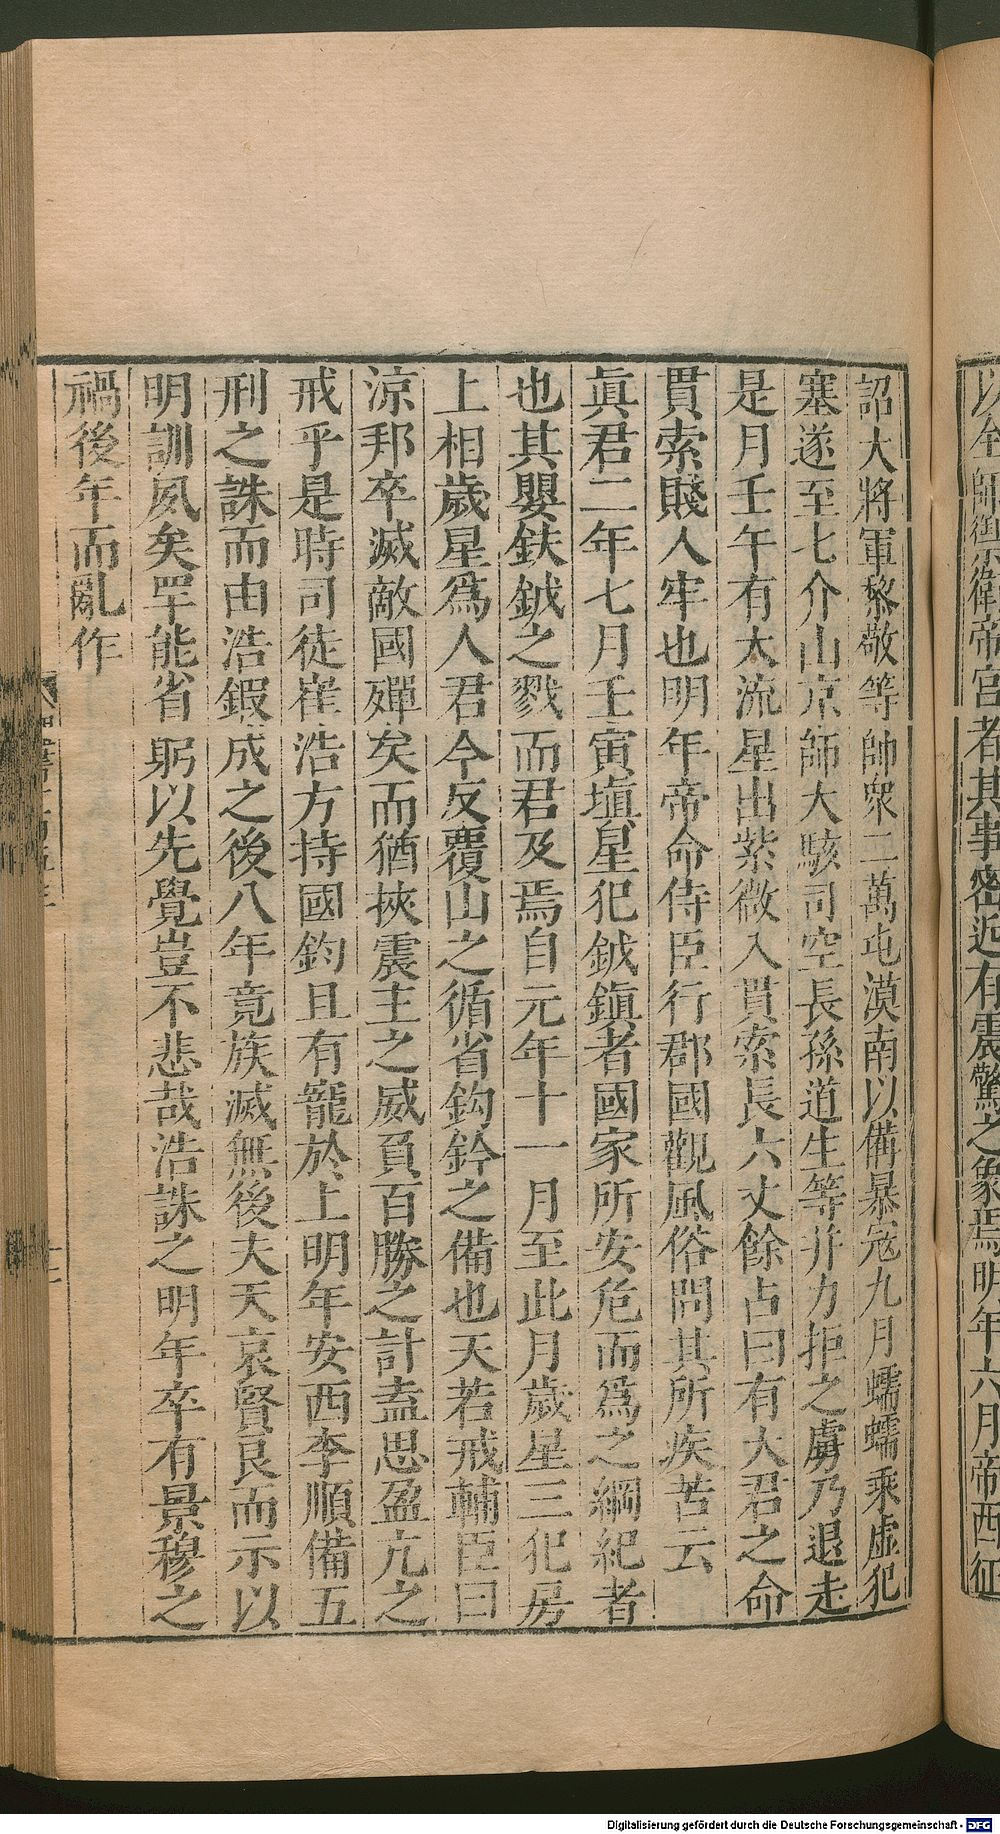 以左師御衛帝宮者其事密近有震驚之象焉明年六月帝西征
詔大將軍黎敬等帥衆二萬屯漠南以備暴寇九月蠕蠕乘虚犯
塞遂至七介山京師大駭司空長孫道生等并力拒之虜乃退走
是月壬午有大流星出紫微入貫索長六丈餘占曰有大君之命
貫索賤人牢也明年帝命侍臣行郡國觀風俗問其所疾苦云
眞君二年七月壬寅塡星犯鉞鎮者國家所安危而爲之綱紀者
也其嬰鈇鉞之戮而君及焉自元年十一月至此月歲星三犯房
上相歲星爲人君今反覆山之循省鈎鈐之備也天若戒輔臣曰
涼邦卒滅敵國殫矣而猶挾震主之威負百勝之計盍思盈亢之
戒乎是時司徒崔浩方持國鈞且有寵於上明年安西李順備五
刑之誅而由浩鍜成之後八年竟族滅無後夫天哀賢良而示以
明訓夙矣罕能省躬以先覺豈不悲哉浩誅之明年卒有景穆之
禍後年而亂作
Digitalisierung gefördert durch die Deutsche Forschungsgemeinschaft - DFG